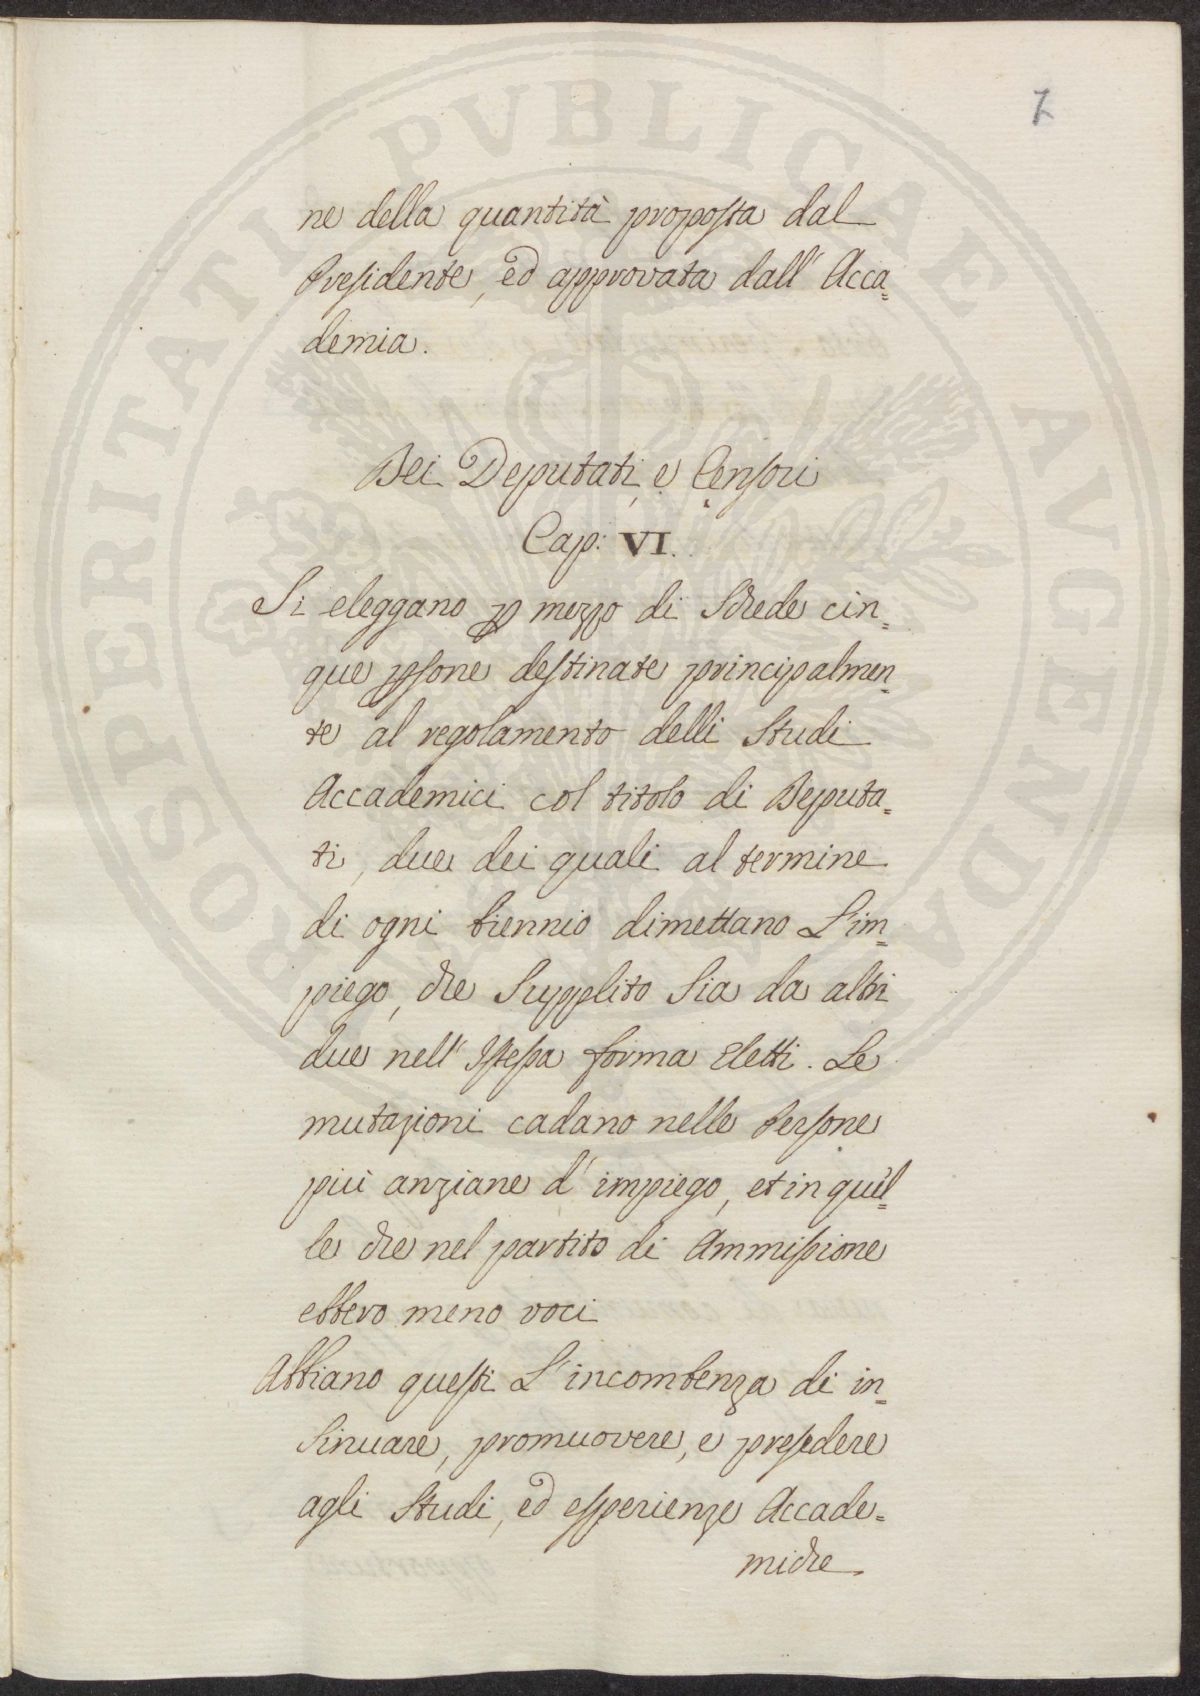 7
ne della quantità proposta dal
Presidente, ed approvata dall' Acca=
demia.
Dei Deputati, e Censori
Cap: VI.
Si eleggano p mezzo di Schede cin=
que psone destinate principalmen=
te al regolamento delli Studi
Accademici col titolo di Deputa=
ti, due dei quali al termine
di ogni biennio dimettano L'im=
piego, che Supplito Sia da altri
due nell' Istessa forma Eletti. Le
mutazioni cadano nelle Persone
più anziane d' impiego, et in quel=
le che nel partito di Ammissione
ebbero meno voci
Abbiano questi L' incombenza di in=
Sinuare, promuovere, e presedere
agli Studi, ed esperienze Accade=
miche
PROSPERITATI PVBLICAE AVGENDAE